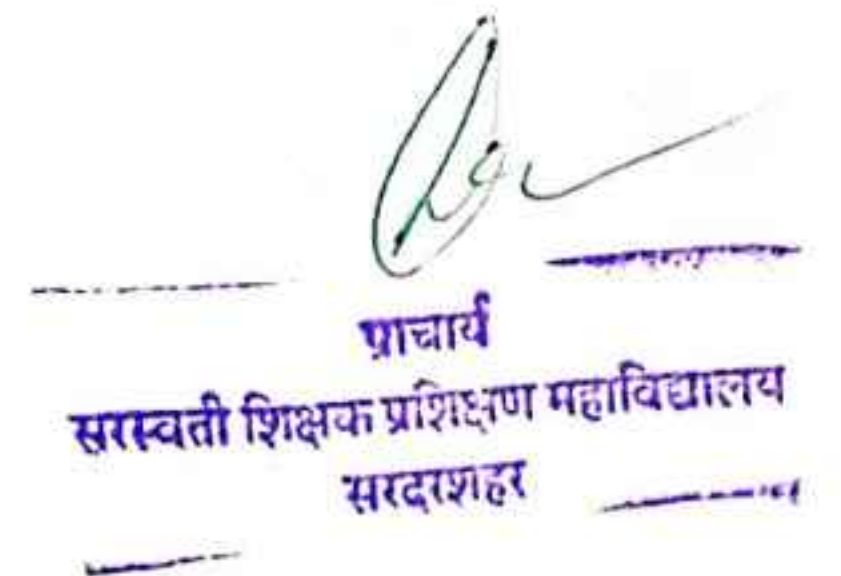 प्राचार्य
सरस्वती शिक्षक प्रशिक्षण महाविद्यालय
सरदरशहर